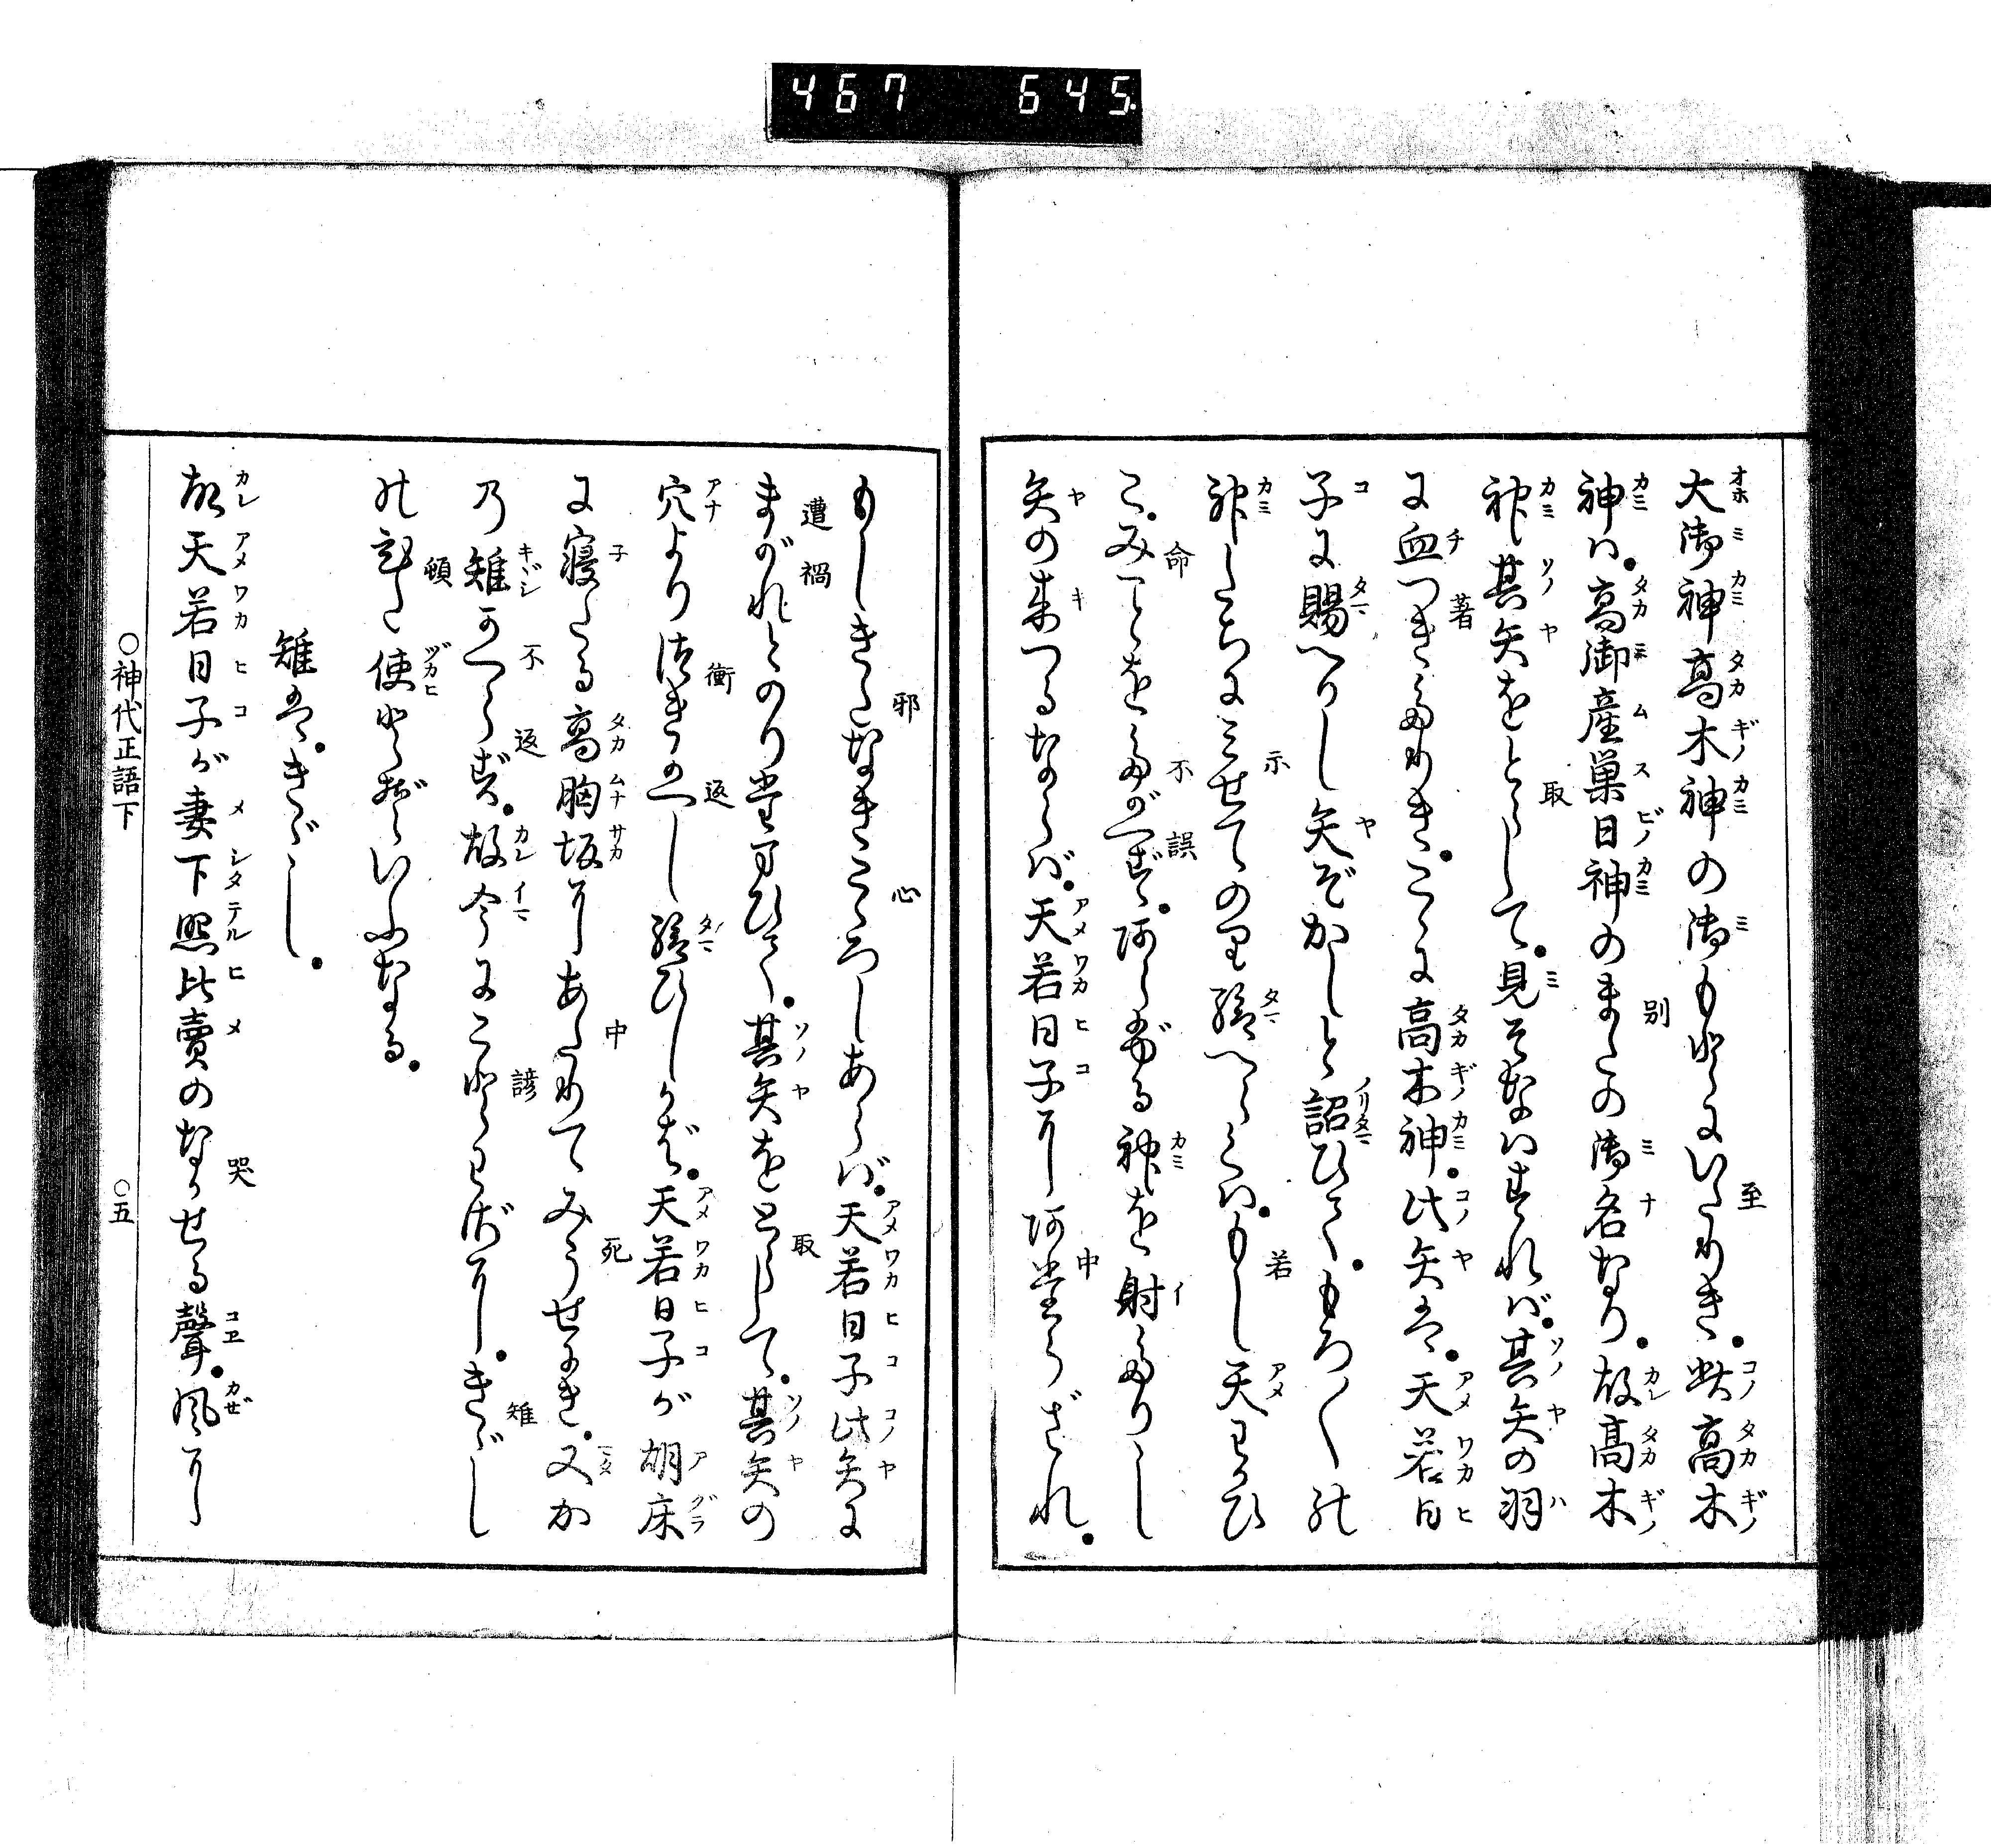 467 645.
大御神高木神の御もとにいたりき。此高木
神は。高御産巣日神のまたの御名なり。故高木
神其矢をとらして。見そなはすれば。其矢の羽
に血つきたりき。こゝに高木神。此矢は。天若日
子に賜へりし矢ぞかしと詔ひて。もろ〳〵の
神たちにみせての里給へらくは。もし天わかひ
こ。みことをたがへず。阿らぶる神を射たりし
矢の来つるならば。天若日子に阿たらざれ。
もしきたなきこゝろしあらば。天若日子此矢に
まがれとのりたまひて。其矢をとらして。其矢の
穴より衝きかへし給ひしかば。天若日子が胡床
に寝たる高胸坂にあたりてみうせにき。又か
の雉かへらず。故今にことわざに。きゞし
の頓使とぞいふなる。
雉は。きゞし。
故天若日子が妻下照比賣のなかせる聲。風に
○神代正語下 ○五